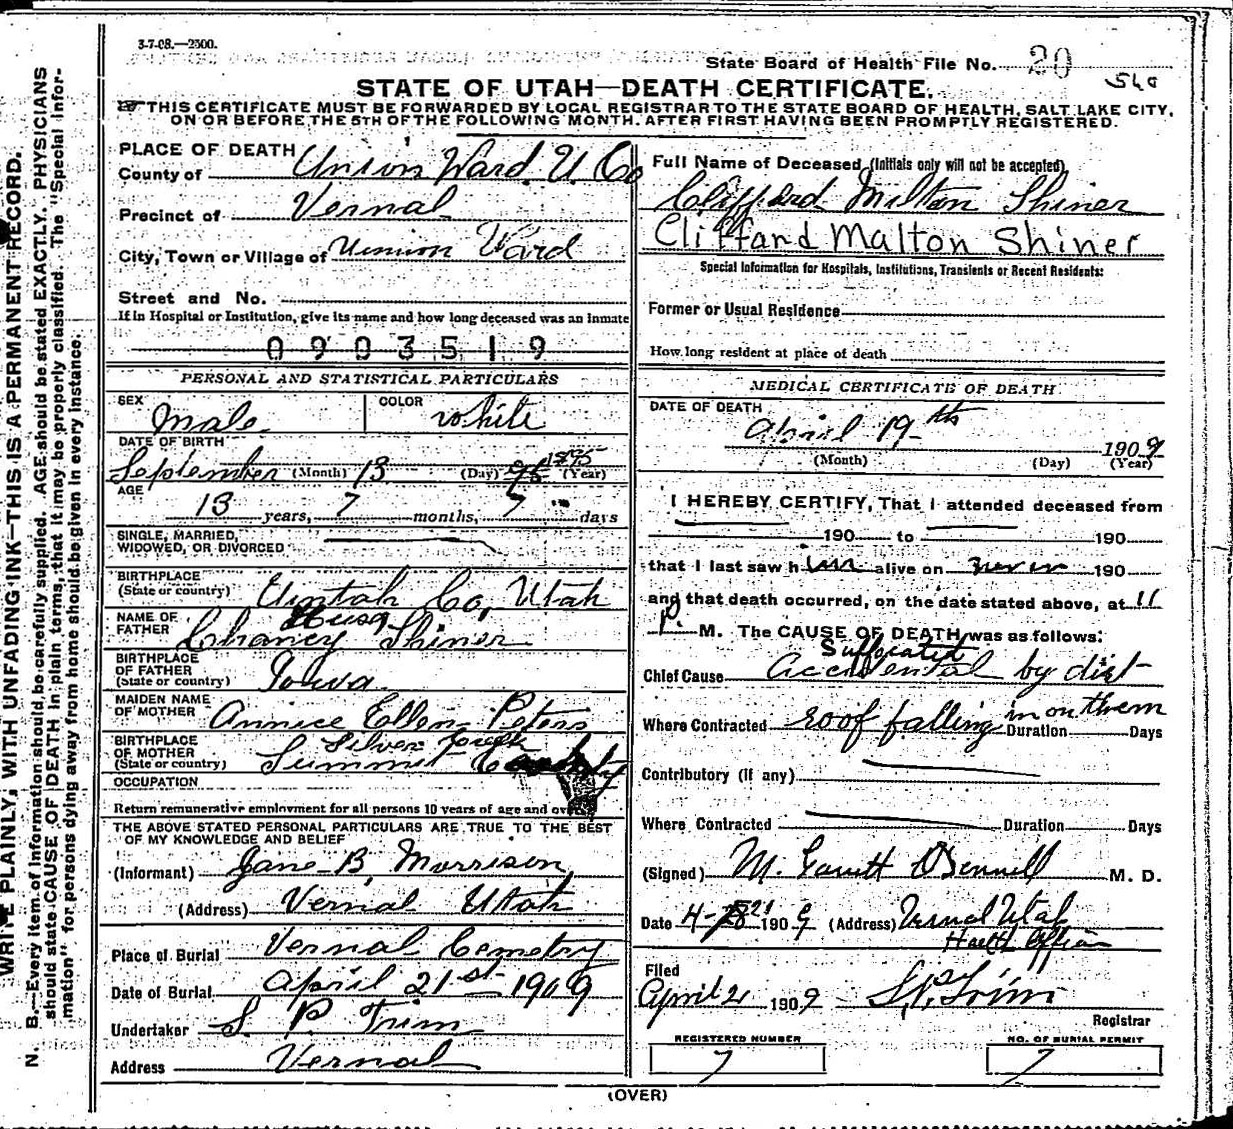 3-7-08.—2500.
State Board of Health File No. 20
560
STATE OF UTAH—DEATH CERTIFICATE.
THIS CERTIFICATE MUST BE FORWARDED BY LOCAL REGISTRAR TO THE STATE BOARD OF HEALTH, SALT LAKE CITY,
ON OR BEFORE THE 5TH OF THE FOLLOWING MONTH. AFTER FIRST HAVING BEEN PROMPTLY REGISTERED.
WRITE PLAINLY, WITH UNFADING INK—THIS IS A PERMANENT RECORD.
N. B.—Every item of information should be carefully supplied. AGE should be stated EXACTLY. PHYSICIANS
should state CAUSE OF DEATH in plain terms, that it may be properly classified. The "Special Infor-
mation" for persons dying away from home should be given in every instance.
PLACE OF DEATH
County of Union Ward U. Co
Precinct of Vernal
City, Town or Village of Union Ward
Street and No.
If in Hospital or Institution, give its name and how long deceased was an inmate
0903519
PERSONAL AND STATISTICAL PARTICULARS
SEX Male COLOR White
DATE OF BIRTH
September (Month) 13 (Day) 95 1895 (Year)
AGE
13 years, 7 months, 7 days
SINGLE, MARRIED,
WIDOWED, OR DIVORCED
BIRTHPLACE
(State or country) Uintah Co, Utah
NAME OF
FATHER Chancy Shiner
BIRTHPLACE
OF FATHER
(State or country) Iowa
MAIDEN NAME
OF MOTHER Annice Ellen Peters
BIRTHPLACE
OF MOTHER Silver
(State or country) Summit County
OCCUPATION
Return remunerative employment for all persons 10 years of age and over
THE ABOVE STATED PERSONAL PARTICULARS ARE TRUE TO THE BEST
OF MY KNOWLEDGE AND BELIEF
(Informant) Jane B. Morrison
(Address) Vernal Utah
Place of Burial Vernal Cemetry
Date of Burial April 21st 1909
Undertaker S. P. Trim
Address Vernal
Full Name of Deceased (Initials only will not be accepted)
Clifford Milton Shiner
Cliffand Malton Shiner
Special Information for Hospitals, Institutions, Transients or Recent Residents:
Former or Usual Residence
How long resident at place of death
MEDICAL CERTIFICATE OF DEATH
DATE OF DEATH
April 19th 1909
(Month) (Day) (Year)
I HEREBY CERTIFY, That I attended deceased from
190 to 190
that I last saw him alive on never 190
and that death occurred, on the date stated above, at 11
P. M. The CAUSE OF DEATH was as follows:
Suffocated
Chief Cause Accidental by dirt
Where Contracted roof falling in on them Duration Days
Contributory (if any)
Where Contracted Duration Days
(Signed) M. M. D.
Date 4-28 21 1909 (Address) Vernal Utah
Health Officer
Filed
April 21 1909 S. P. Trim
Registrar
REGISTERED NUMBER
7
NO. OF BURIAL PERMIT
7
(OVER)